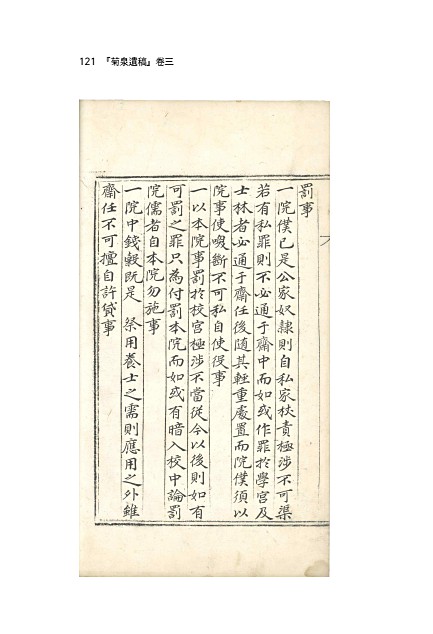 121 『菊泉遺稿』卷三
罰事
一院僕已是公家奴隷則自私家杖責極涉不可渠
若有私罪則不必通于齋中而如或作罪於學宮及
士林者必通于齋任後随其輕重處置而院僕須以
院事使喚斷不可私自使役事
一以本院事罰於校宮極涉不當從今以後則如有
可罰之罪只為付罰本院而如或有暗入校中論罰
院儒者自本院勿施事
一院中錢穀既是 祭用養士之需則應用之外雖
齋任不可擅自許貸事